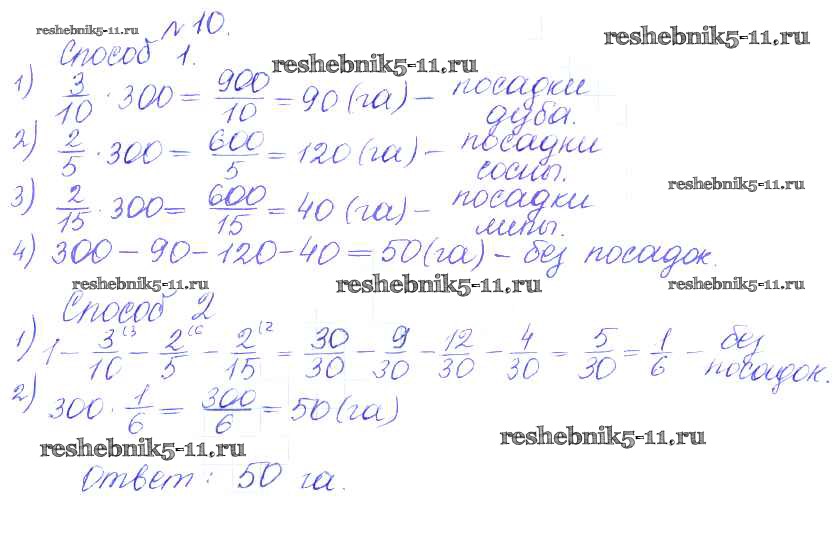 №10.
reshebnik5-11.ru
reshebnik5-11.ru
Способ 1.
reshebnik5-11.ru
1) 3/10 · 300 = 900/10 = 90 (га) – посадки дуба.
2) 2/5 · 300 = 600/5 = 120 (га) – посадки сосны.
reshebnik5-11.ru
3) 2/15 · 300 = 600/15 = 40 (га) – посадки липы.
4) 300 – 90 – 120 – 40 = 50 (га) – без посадок.
reshebnik5-11.ru
reshebnik5-11.ru
reshebnik5-11.ru
Способ 2
1) 1 – 3/10 (3 – 2/5 (6 – 2/15 (2 = 30/30 – 9/30 – 12/30 – 4/30 = 5/30 = 1/6 – без посадок.
2) 300 · 1/6 = 300/6 = 50 (га)
reshebnik5-11.ru
reshebnik5-11.ru
Ответ: 50 га.